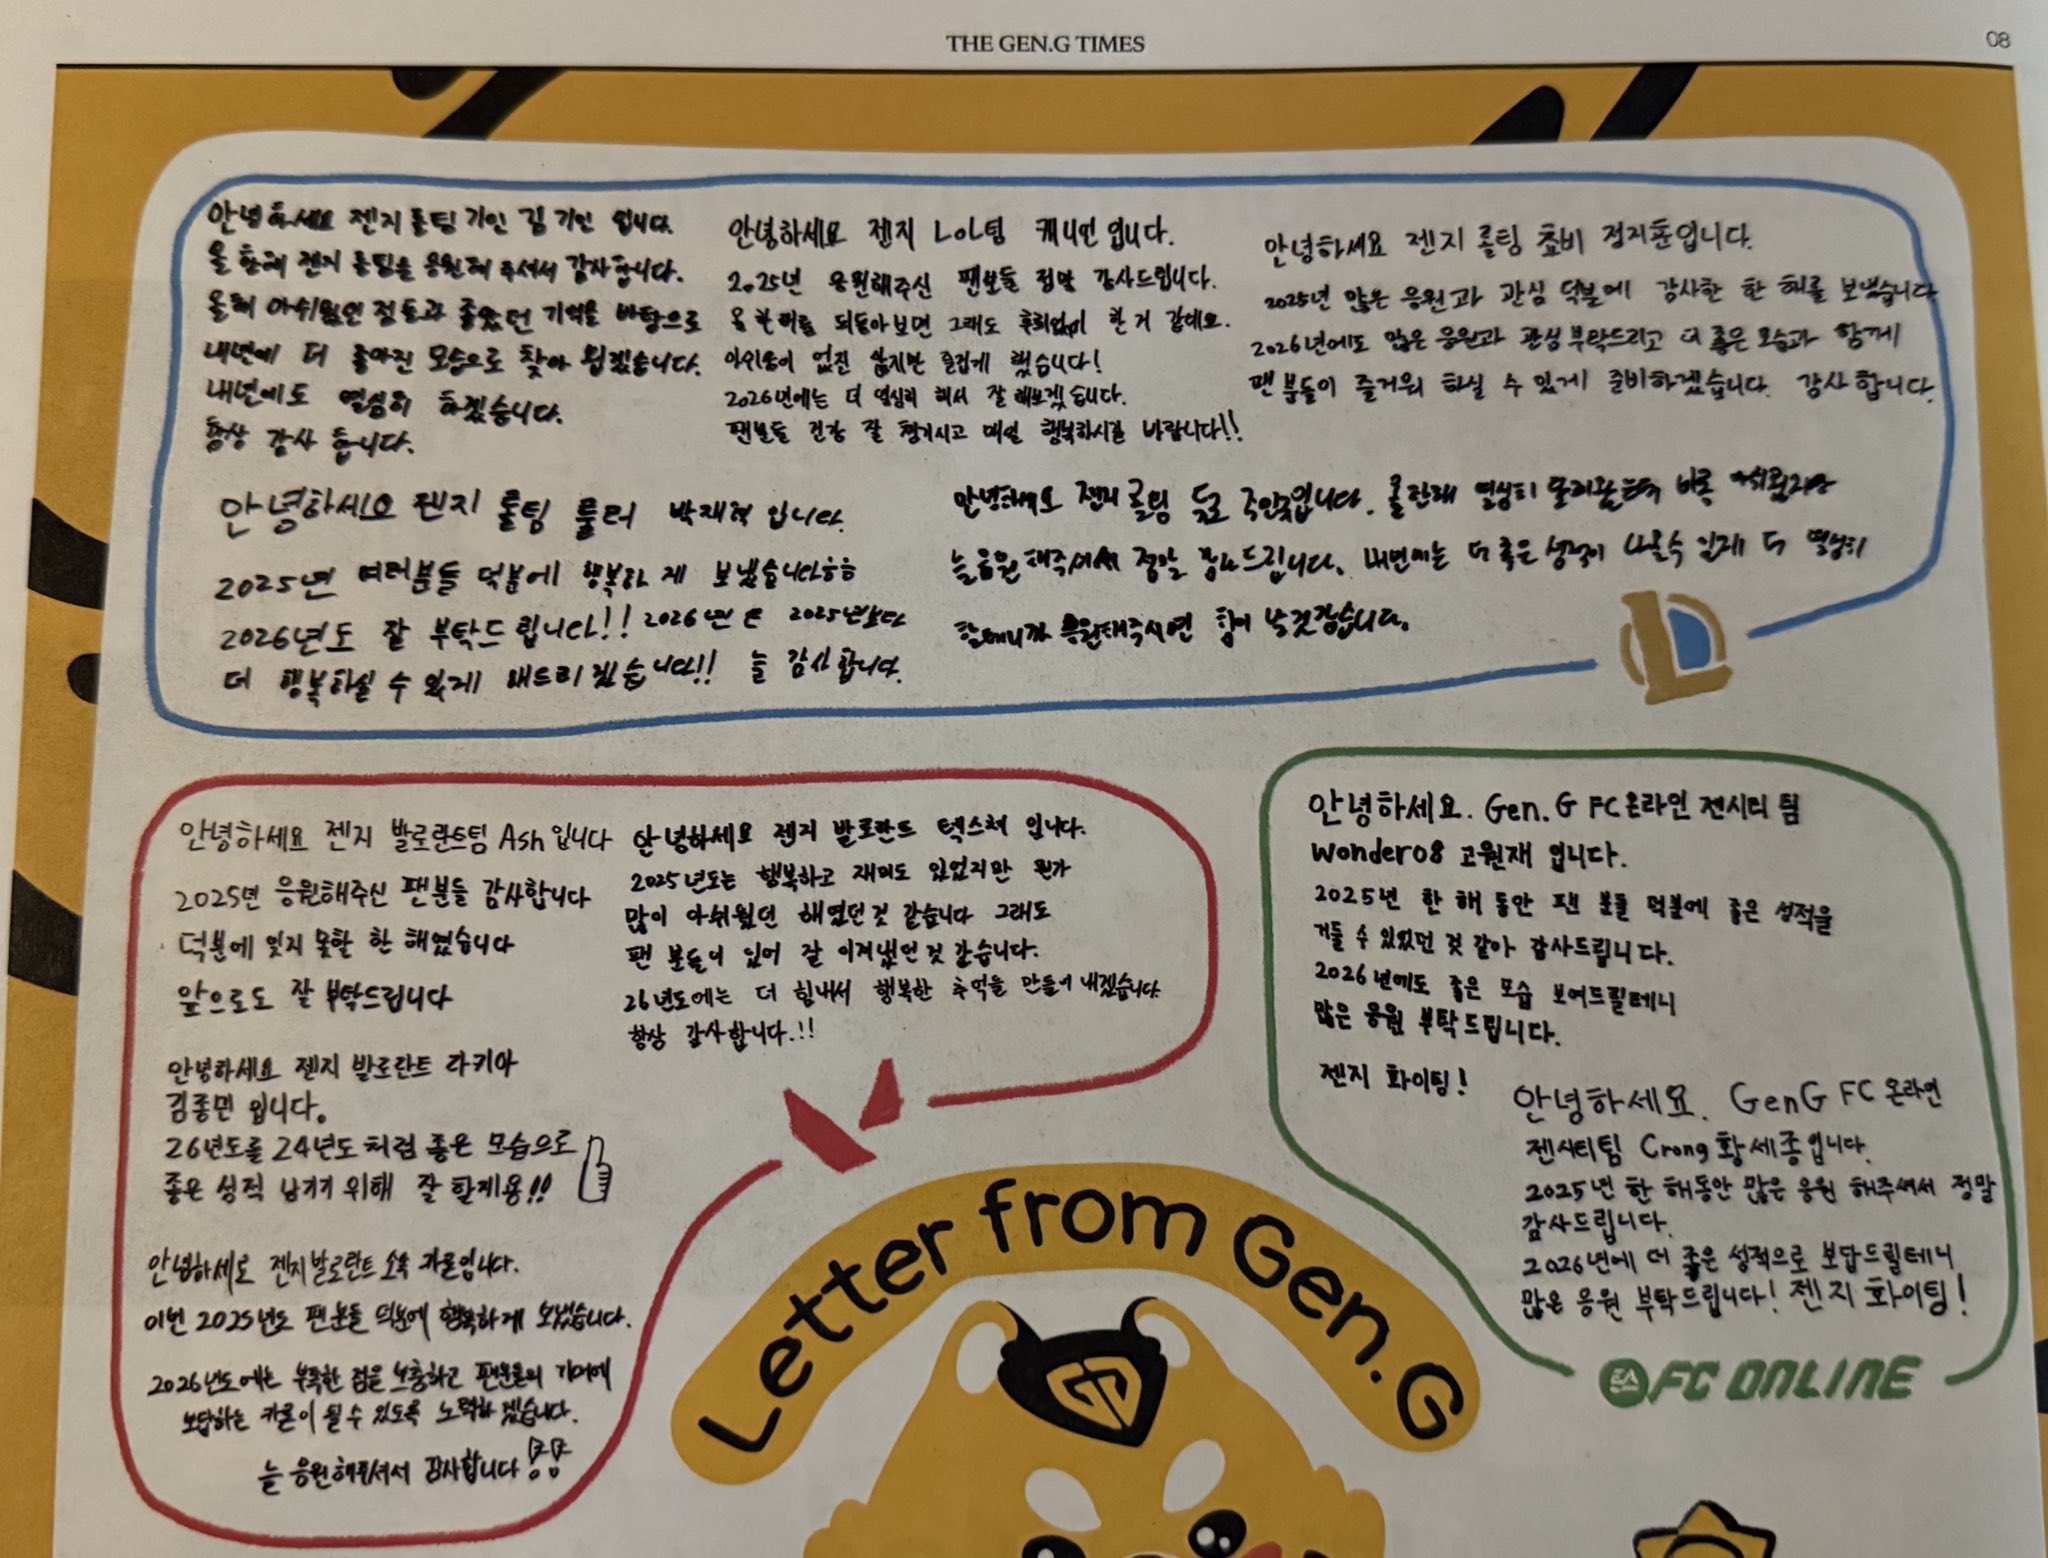 THE GEN.G TIMES
08
안녕하세요 젠지 롤팀 기인 김기인 입니다.
올 한해 젠지 롤팀을 응원해 주셔서 감사합니다.
올해 아쉬웠던 점들과 좋았던 기억을 바탕으로
내년에 더 좋아진 모습으로 찾아 뵙겠습니다.
내년에도 열심히 하겠습니다.
항상 감사 합니다.
안녕하세요 젠지 LoL팀 캐니언 입니다.
2025년 응원해주신 팬분들 정말 감사드립니다.
올 한해를 되돌아보면 그래도 후회없이 한 거 같네요.
아쉬움이 없진 않지만 즐겁게 했습니다!
2026년에는 더 열심히 해서 잘 해보겠습니다.
팬분들 건강 잘 챙기시고 매일 행복하시길 바랍니다!!
안녕하세요 젠지 롤팀 쵸비 정지훈입니다.
2025년 많은 응원과 관심 덕분에 감사한 한 해를 보냈습니다
2026년에도 많은 응원과 관심 부탁드리고 더 좋은 모습과 함께
팬 분들이 즐거워 하실 수 있게 준비하겠습니다. 감사합니다.
안녕하세요 젠지 롤팀 룰러 박재혁 입니다.
2025년 여러분들 덕분에 행복하게 보냈습니다ㅎㅎ
2026년도 잘 부탁드립니다!! 2026년은 2025년보다
더 행복하실 수 있게 해드리겠습니다!! 늘 감사합니다.
안녕하세요 젠지 롤팀 듀로 주민규입니다. 올한해 열심히 달려왔는데
늘 응원해주셔서 정말 감사드립니다. 내년에는 더 좋은 성적이 나올수 있게 더 열심히
할테니까 응원해주시면 힘이 날것같습니다.
안녕하세요 젠지 발로란트팀 Ash입니다
2025년 응원해주신 팬분들 감사합니다
덕분에 잊지 못할 한 해였습니다
앞으로도 잘 부탁드립니다
안녕하세요 젠지 발로란트 텍스처 입니다.
2025년도는 행복하고 재미도 있었지만 뭔가
많이 아쉬웠던 해였던것 같습니다 그래도
팬 분들이 있어 잘 이겨냈던것 같습니다.
26년도에는 더 힘내서 행복한 추억을 만들어 내겠습니다.
항상 감사합니다.!!
안녕하세요 젠지 발로란트 라키아
김종민 입니다.
26년도를 24년도처럼 좋은 모습으로
좋은 성적 남기기 위해 잘 할게용!!
안녕하세요 젠지발로란트 소속 카론입니다.
이번 2025년도 팬분들 덕분에 행복하게 보냈습니다.
2026년도에는 부족한 점을 보충하고 팬분들의 기대에
보답하는 카론이 될수 있도록 노력하겠습니다.
늘 응원해주셔서 감사합니다
안녕하세요. Gen.G FC온라인 젠시티 팀
Wonder08 고원재 입니다.
2025년 한 해 동안 팬 분들 덕분에 좋은 성적을
거둘 수 있었던 것 같아 감사드립니다.
2026년에도 좋은 모습 보여드릴테니
많은 응원 부탁드립니다.
젠지 화이팅!
안녕하세요. GenG FC온라인
젠시티팀 Crong 황세종입니다.
2025년 한 해동안 많은 응원 해주셔서 정말
감사드립니다.
2026년에 더 좋은 성적으로 보답드릴테니
많은 응원 부탁드립니다! 젠지 화이팅!
EA FC ONLINE
Letter from Gen.G